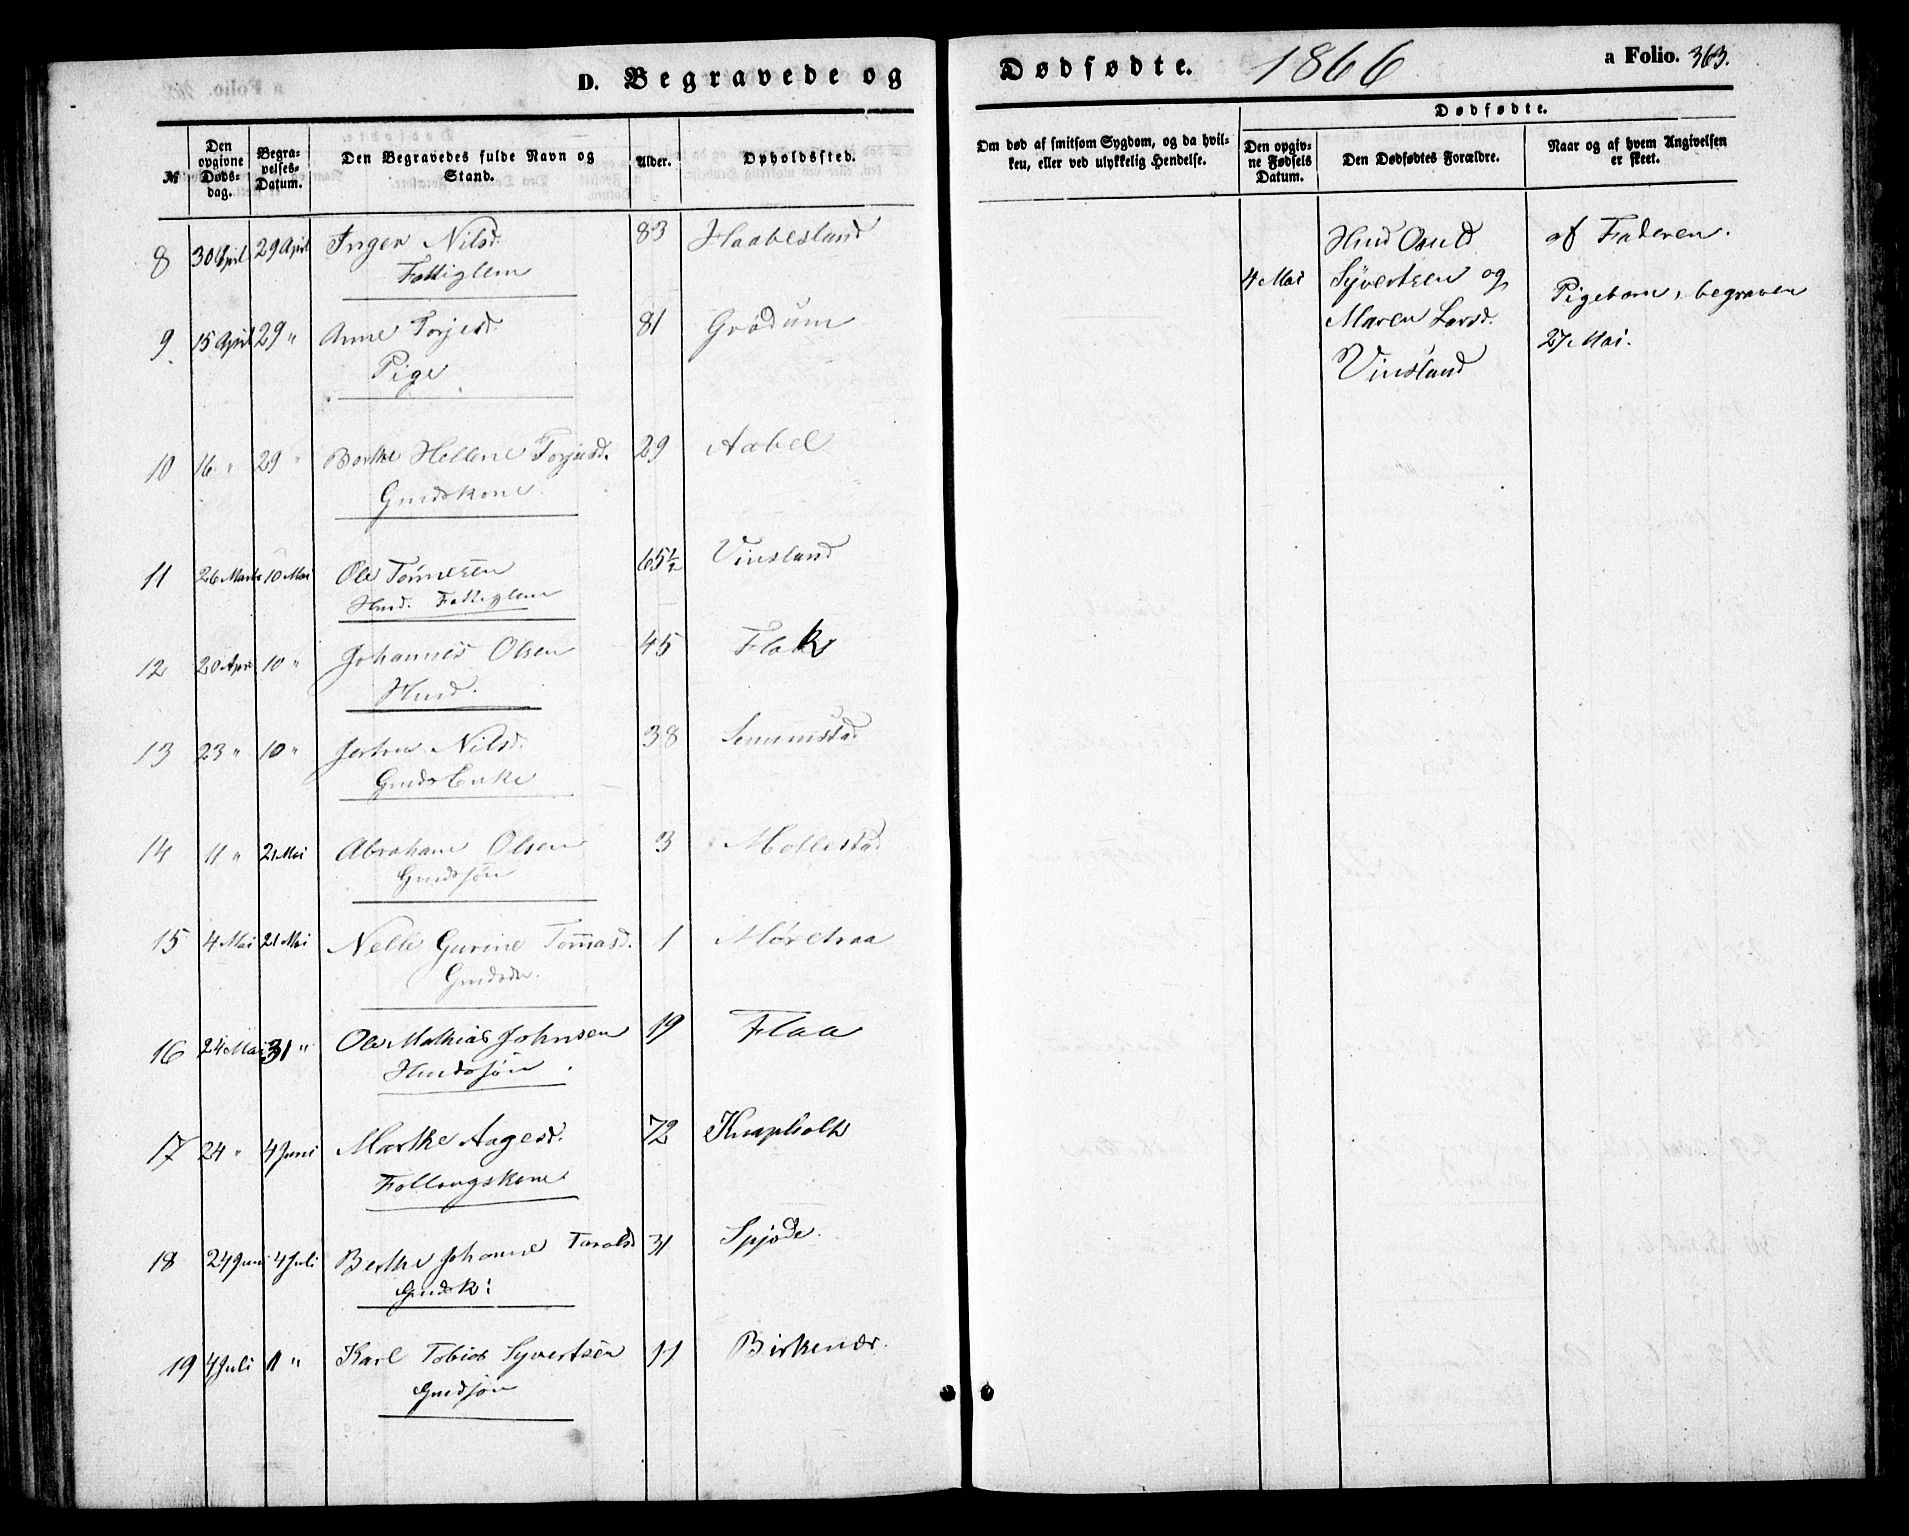 D. Begravede og Dødfødte. 1866 a Folio. 363.
№
Den opgivne Døds-dag.
Begra-velses-Datum.
Den Begravedes fulde Navn og Stand.
Alder.
Opholdssted.
Om død af smitsom Sygdom, og da hvil-ken, eller ved ulykkelig Hendelse.
Dødfødte.
Den opgiv-ne Fødsels Datum.
Den Dødfødtes Forældre.
Naar og af hvem Angivelsen er skeet.
8 30 April 29 April Inger Nilsd. 83 Haabesland
Fattiglem
9 15 April 29 " Anne Torjesd. 81 Grødum
Pige
10 16 " 29 " Berthe Hellene Torjusd. 29 Aabel
Gmdskone
11 26 Marts 10 Mai Ole Tømesen 65½ Vinsland
Hmd. Fattiglem
12 20 Apr 10 " Johannes Olsen 45 Flak
Hmd.
13 23 " 10 " Nilsd. 38
Gmds Enke
14 11 " 21 Mai Abraham Olsen 3 Mollestad
Gmdssøn
15 4 Mai 21 Mai Nelle Gurine Tomasd. 1
Gmdsdr.
16 24 Mai 31 " Ole Mathias Johnsen 19 Flaa
Hmdssøn
17 24 " 4 Juni Marthe Aagesd. 72 Knapholt
Follougskone
18 24 Juni 4 Juli Berthe Johanne Taralsd 31 Spjøde.
Gmdsk:
19 4 Juli 11 " Karl Tobias Syvertsen 11 Birkenæs.
Gmdsøn
4 Mai
Hmd Osuld
Syvertsen og
Maren Larsd.
Vinsland
af Faderen.
Pigebarn, begraven
27 Mai.